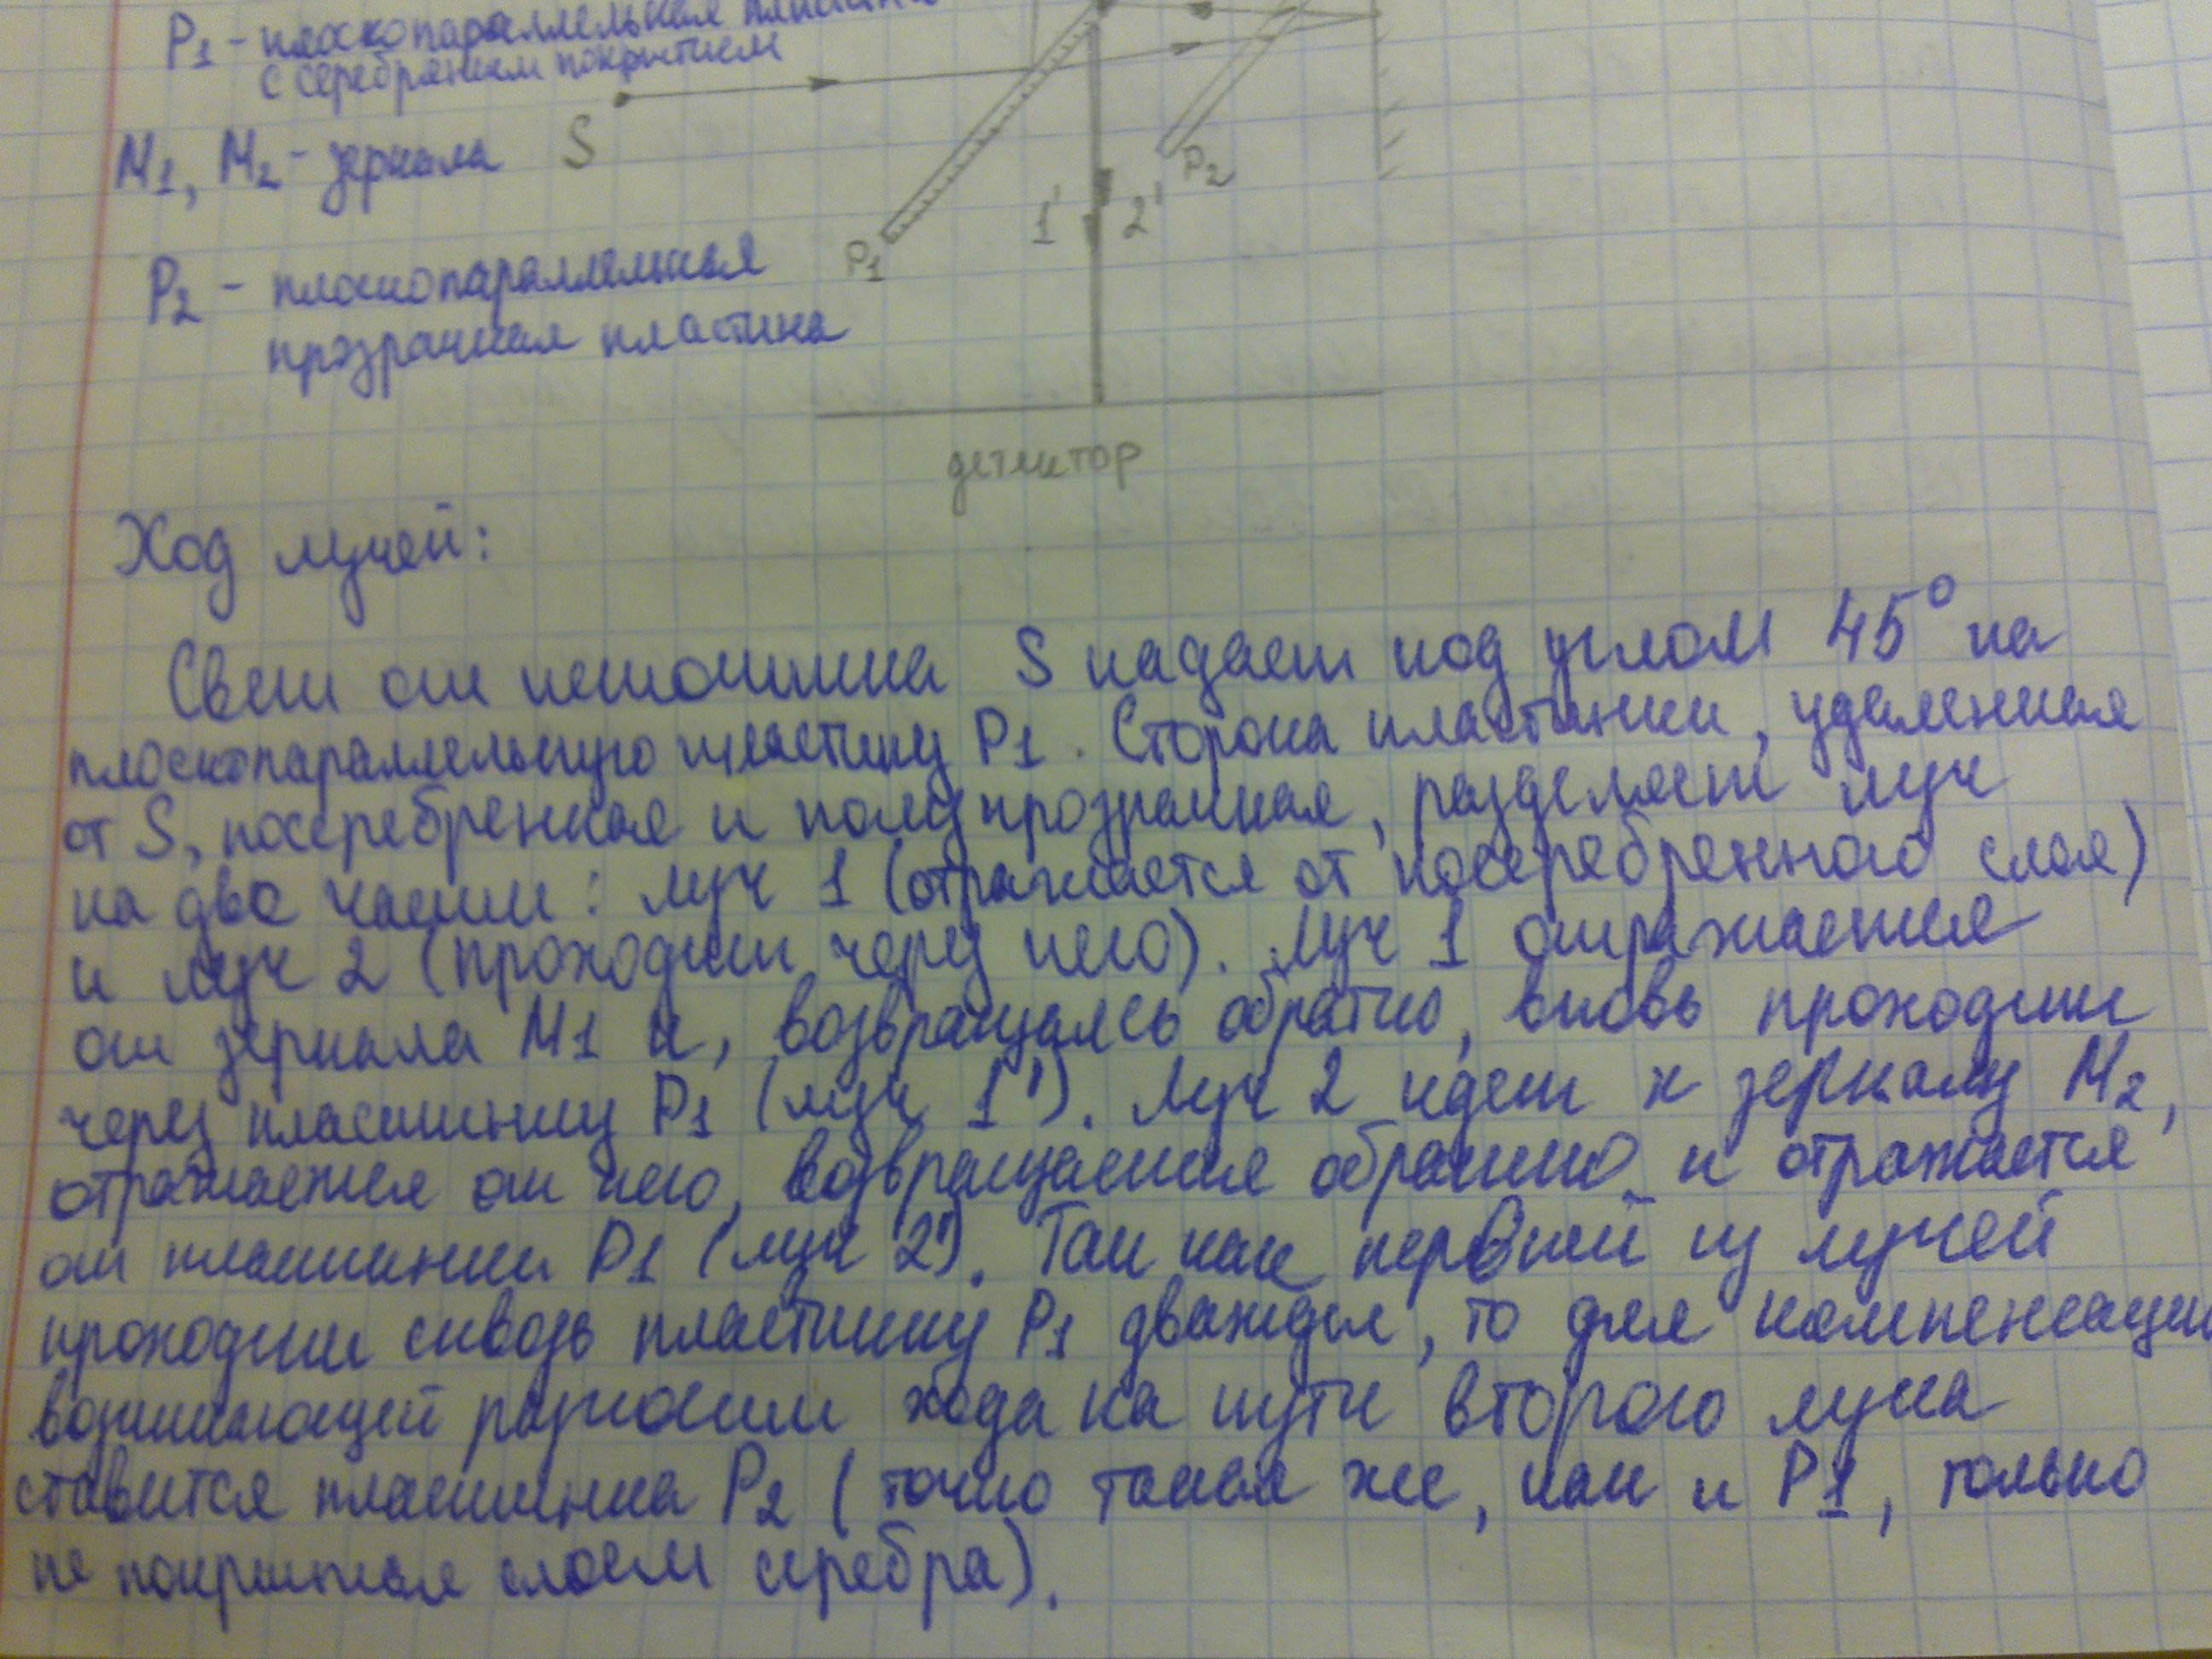 P1 – плоскопараллельная пластина
с серебряным покрытием
M1, M2 – зеркала
S
P2
1' 2'
P1
P2 – плоскопараллельная
прозрачная пластина
детектор
Ход лучей:
Свет от источника S падает под углом 45° на
плоскопараллельную пластину P1. Сторона пластинки, удаленная
от S, посеребренная и полупрозрачная, разделяет луч
на две части: луч 1 (отражается от посеребренного слоя)
и луч 2 (проходит через него). Луч 1 отражается
от зеркала M1 и, возвращаясь обратно, вновь проходит
через пластинку P1 (луч 1'). Луч 2 идет к зеркалу M2,
отражается от него, возвращается обратно и отражается
от пластинки P1 (луч 2'). Так как первый из лучей
проходит сквозь пластинку P1 дважды, то для компенсации
возникающей разности хода на пути второго луча
ставится пластинка P2 (точно такая же, как и P1, только
не покрытая слоем серебра).